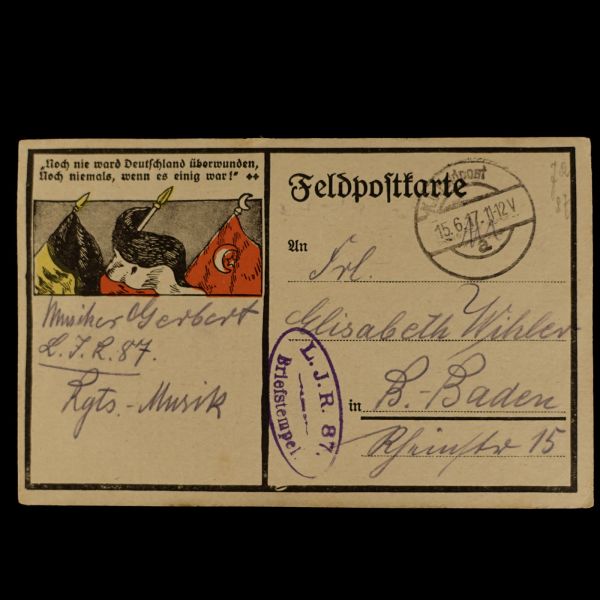 „Noch nie ward Deutschland überwunden,
Noch niemals, wenn es einig war!“
Musiker Gerbert
L. I. R. 87.
Rgts.-Musik
Feldpostkarte
15.6.17.11-12V
a
An
Frl.
Elisabeth Wihler
in B.-Baden
Rheinstr 15
L. J. R. 87.
Briefstempel.